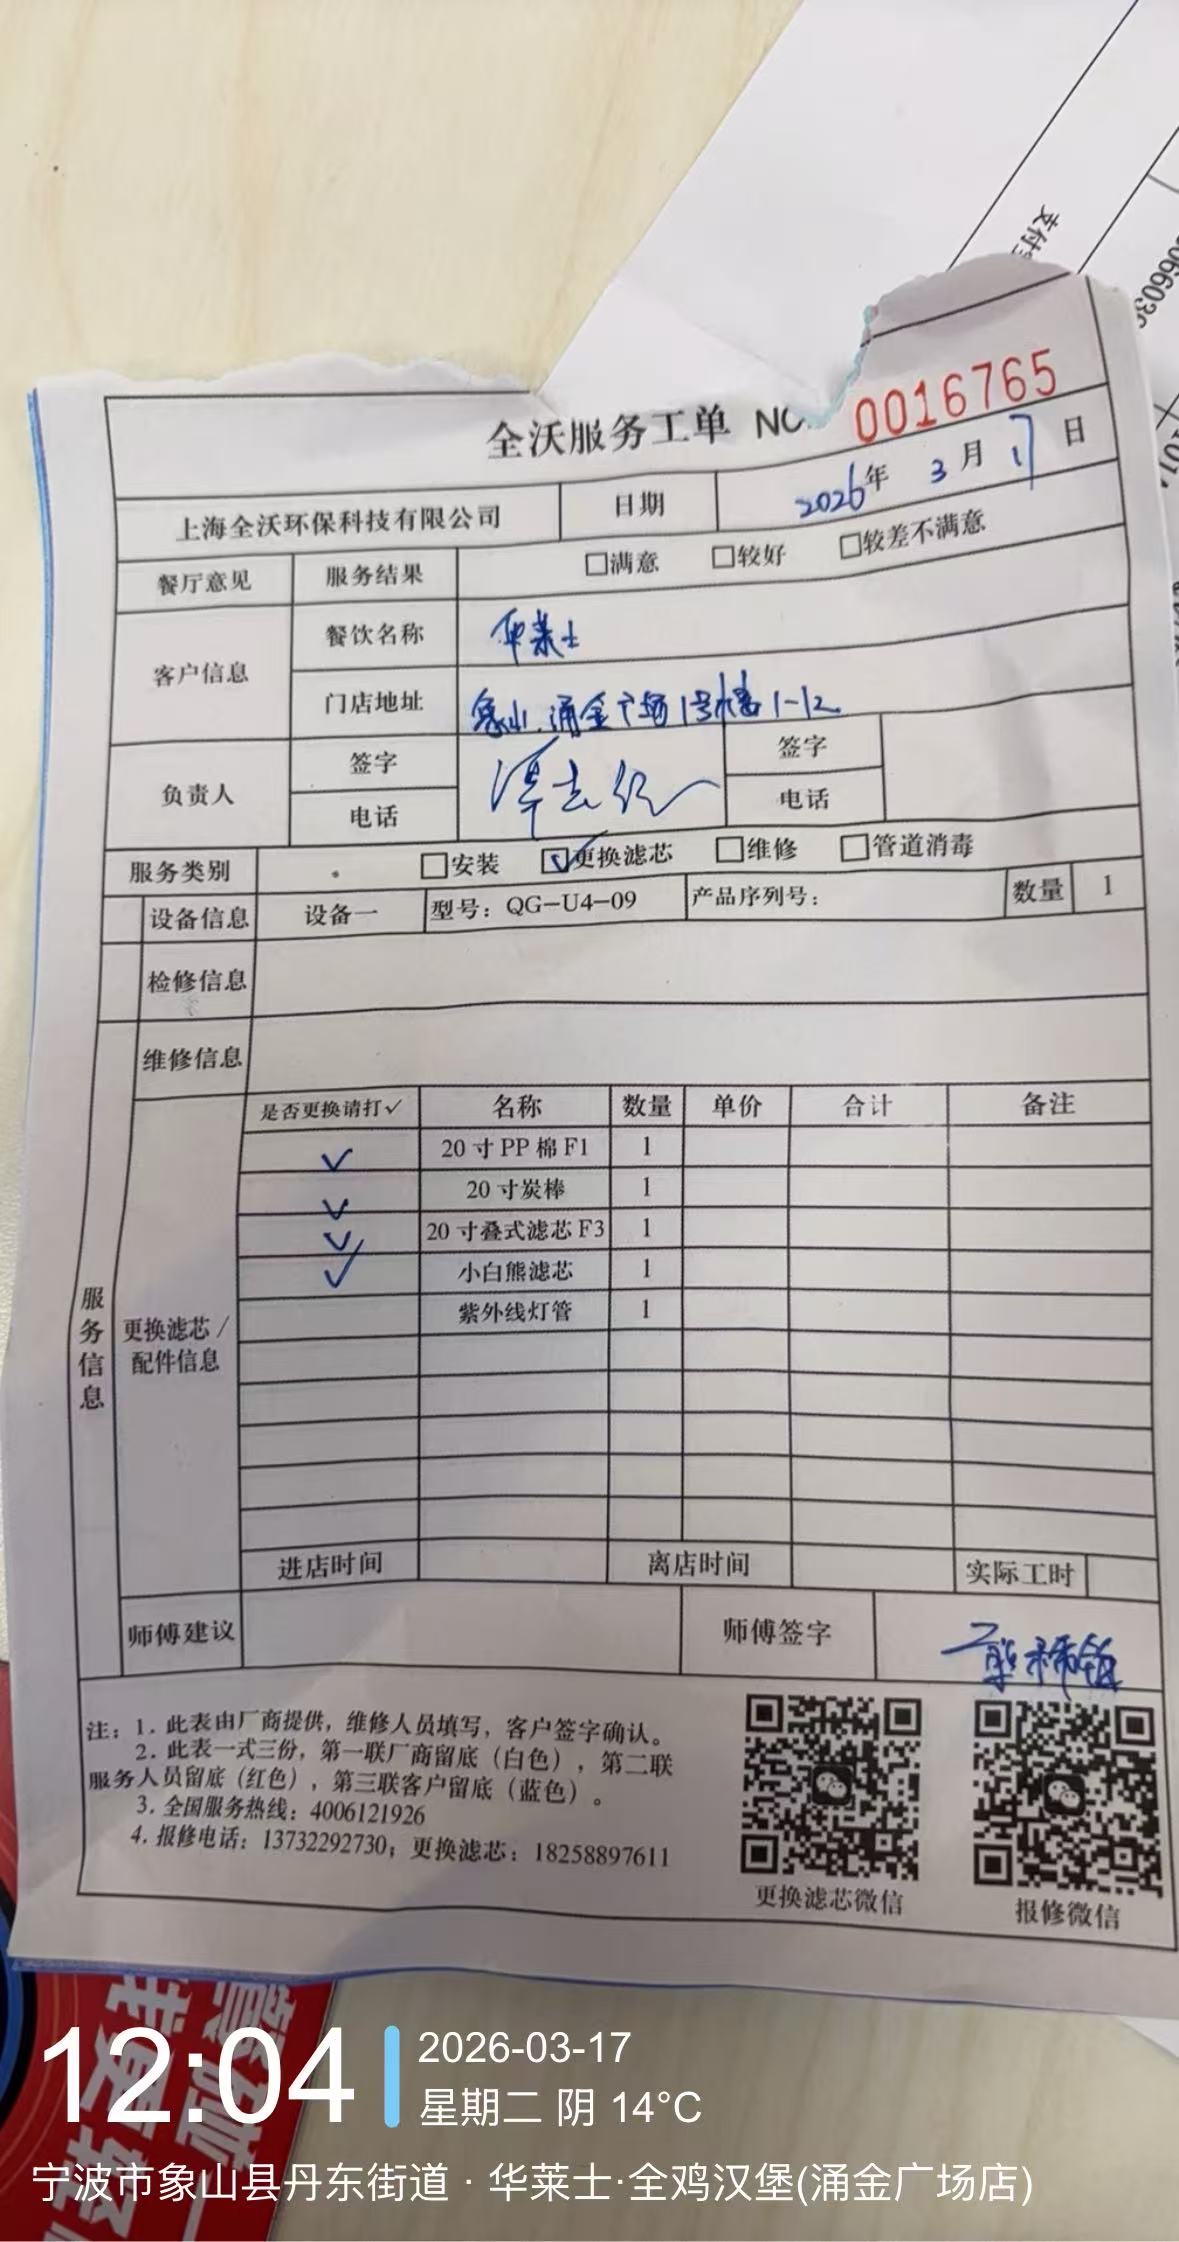 支付
全沃服务工单 NO. 0016765
上海全沃环保科技有限公司 日期 2026年 3月 17日
餐厅意见 服务结果 □满意 □较好 □较差不满意
客户信息 餐饮名称 华莱士
门店地址 象山.涌金广场1号楼1-12
负责人 签字 签字
电话 电话
服务类别 □安装 ☑更换滤芯 □维修 □管道消毒
设备信息 设备一 型号：QG-U4-09 产品序列号： 数量 1
检修信息
维修信息
服务信息
更换滤芯/
配件信息
是否更换请打✓ 名称 数量 单价 合计 备注
✓ 20寸PP棉F1 1
✓ 20寸炭棒 1
✓ 20寸叠式滤芯F3 1
✓ 小白熊滤芯 1
紫外线灯管 1
进店时间 离店时间 实际工时
师傅建议 师傅签字
注：1. 此表由厂商提供，维修人员填写，客户签字确认。
2. 此表一式三份，第一联厂商留底（白色），第二联
服务人员留底（红色），第三联客户留底（蓝色）。
3. 全国服务热线：4006121926
4. 报修电话：13732292730；更换滤芯：18258897611
更换滤芯微信 报修微信
12:04
2026-03-17
星期二 阴 14°C
宁波市象山县丹东街道·华莱士·全鸡汉堡(涌金广场店)